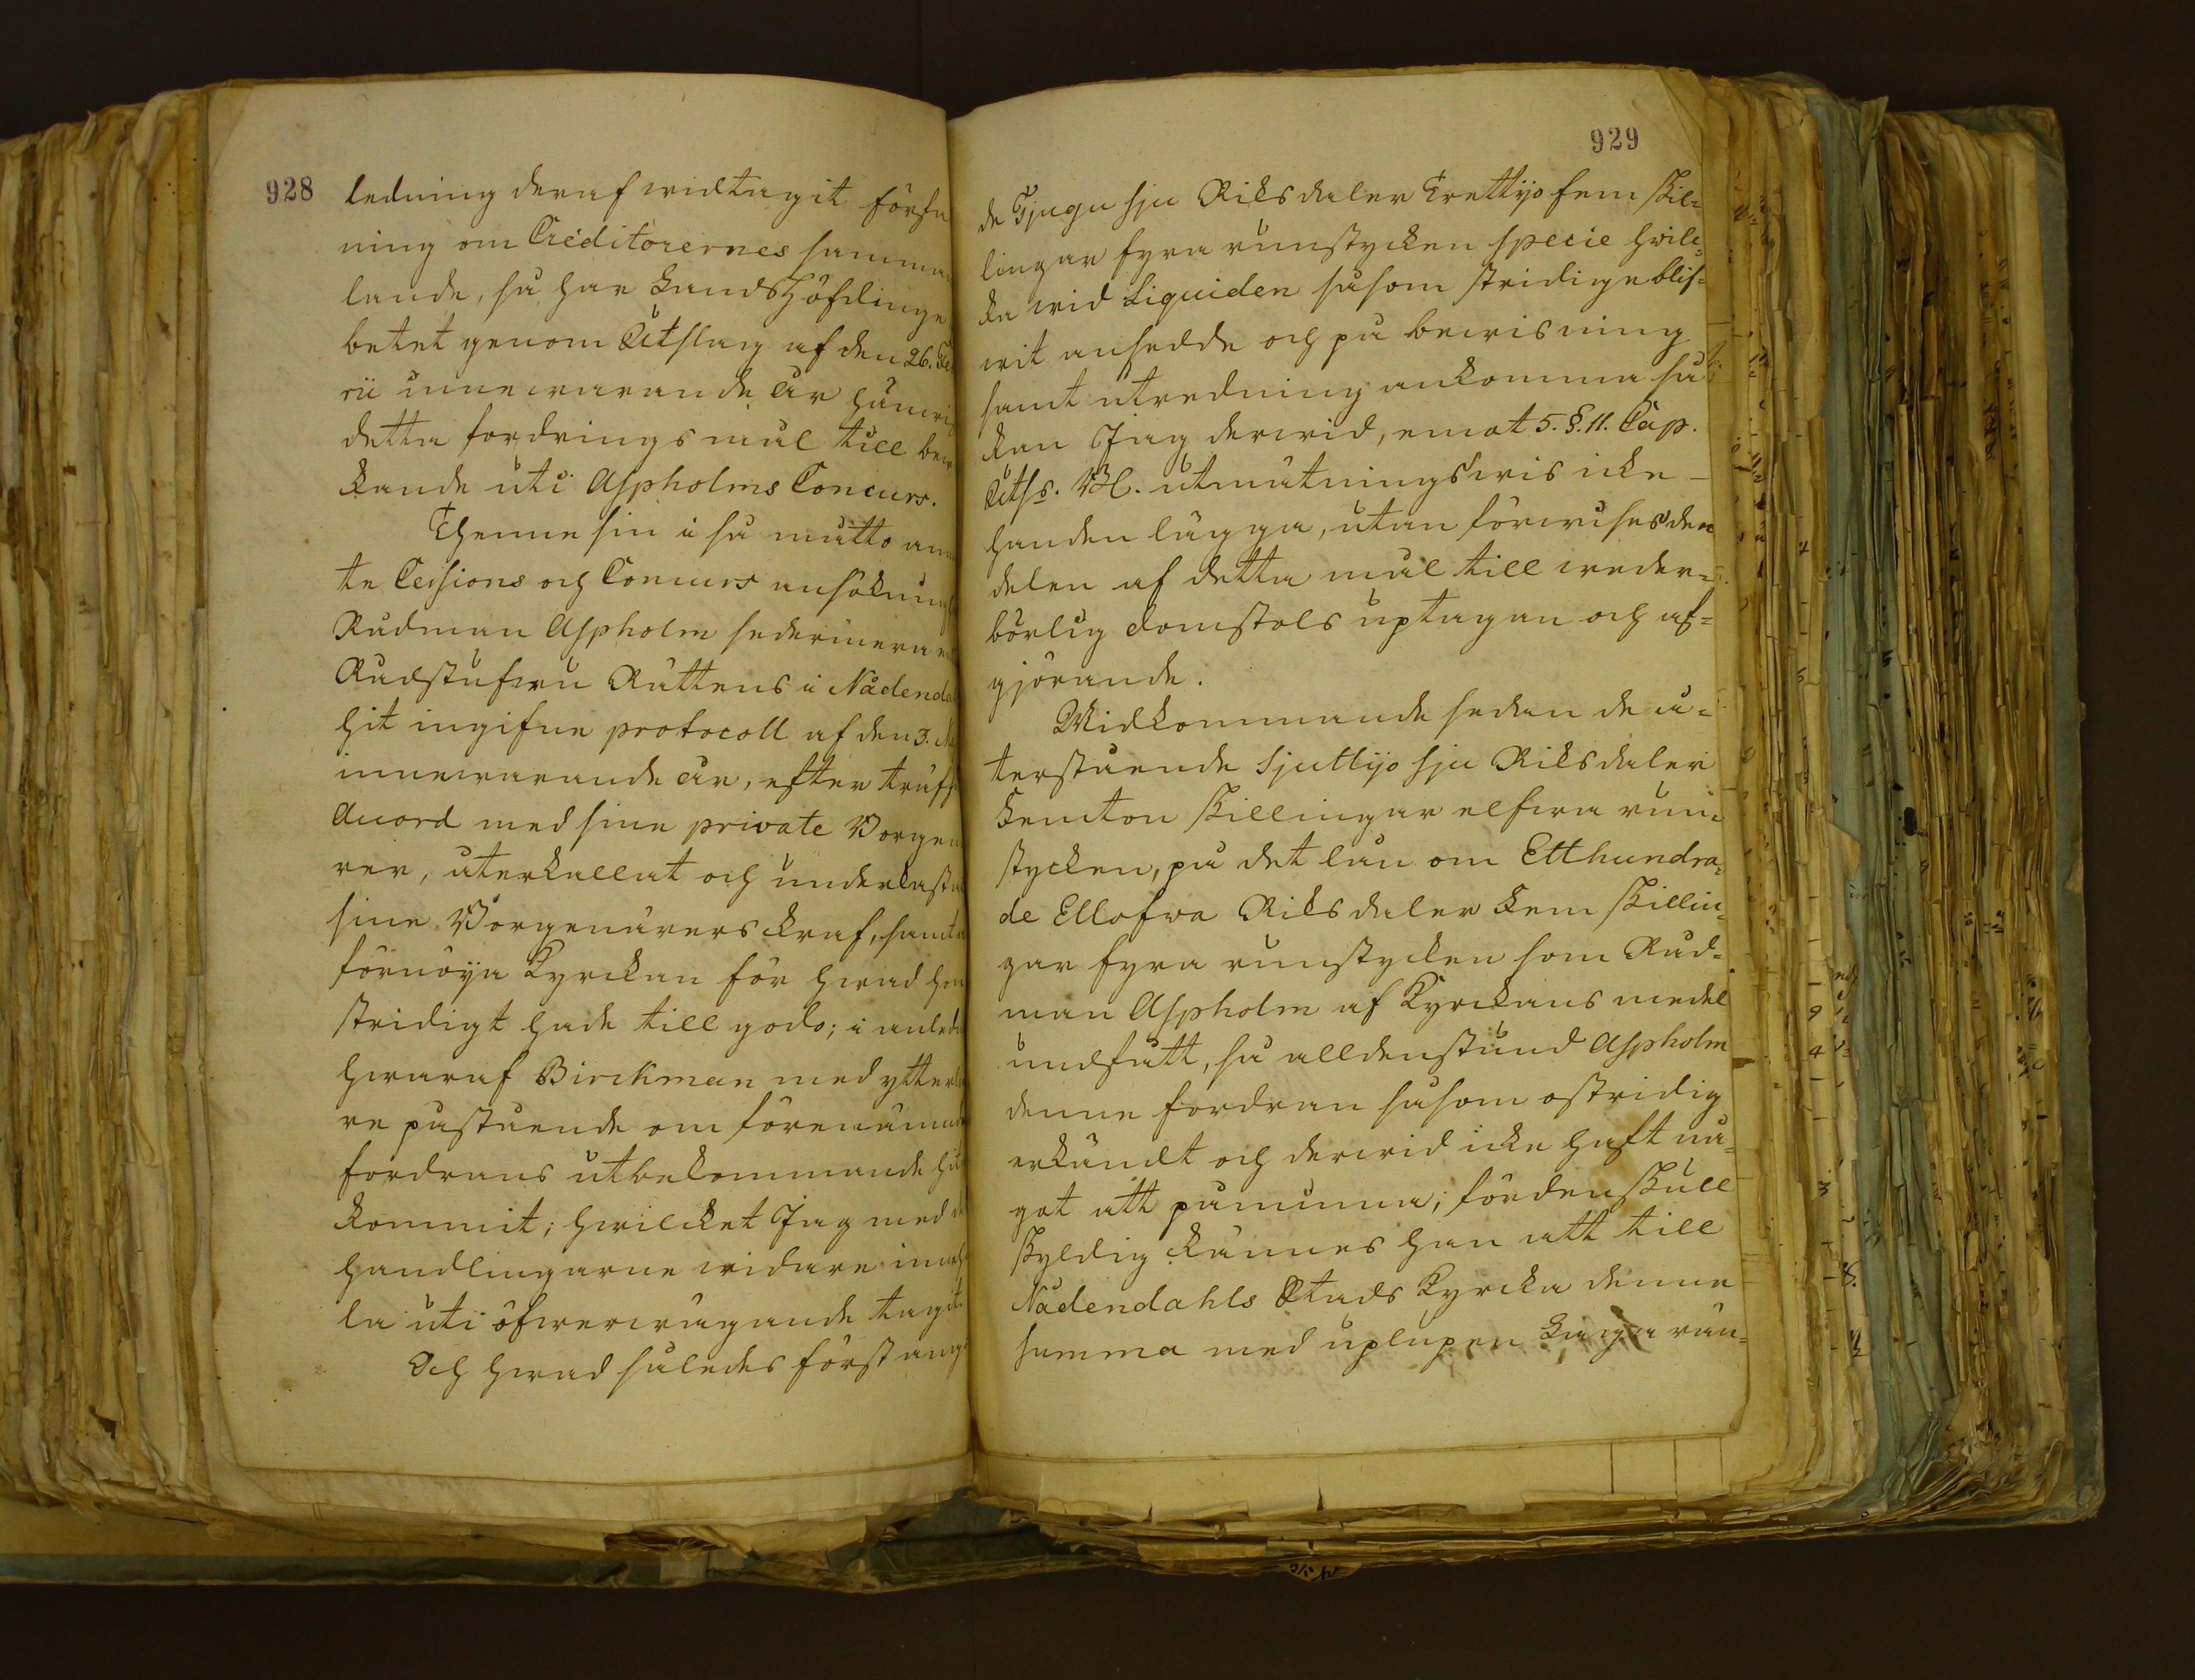 928
ledning deraf widtagit förfa
ning om Creditorernes samman
lande, så har Landshöfdinge
betet genom Utslag af den 26. Fe
rii innewarande år hänwis
detta fordringsmål till bew
kande uti Aspholms Concurs.
Thenne sin i så måtto an
te Cessions och Concurs ansöknings
Rådman Aspholm sedermera
Rådstufwu Rättens i Nådendal
hit ingifne protocoll af den 3.
innewarande år, efter träff
Accord med sine private Borgen
rer, återkallat och underkastat
sine Borgenärers kraf, samt
förnöija Kyrckan för hwad hon
stridigt hade till godo; i anled
hwaraf Birckman med ytterli
re påstående om förenämnde
fordrans utbekommande hit
kommit; hwilcket Jag med
handlingarne widare
la uti öfwerwägande tagit.
Och hwad således först ang
929
de Tjugu sju Riksdaler Trettijo fem skil=
lingar fyra runstycken specie hwilc=
ka wid Liquiden såsom stridige blif=
wit ansedde och på bewisning
samt utredning ankomma så
kan Jag derwid, emot 5. §. 11. Cap.
Uts. B. utmätningswis icke
handen lägga, utan förwises den
delen af detta mål till weder=
börlig domstols uptagan och af=
gjörande.
Widkommande sedan de å=
terstående Sjuttijo sju Riksdaler
Femton skillingar elfwa run=
stycken, på det lån om Etthundra=
de Ellofwa Riksdaler Fem skillin=
gar fyra runstycken som Råd=
man Aspholm af Kyrckans medel
undfått, så alldenstund Aspholm
denne fordran såsom ostridig
erkändt och derwid icke haft nå=
got att påminna; fördenskull
skyldig kännes han att till
Nådendahls Stads Kyrcka denne
summa med uplupen Laga rän=